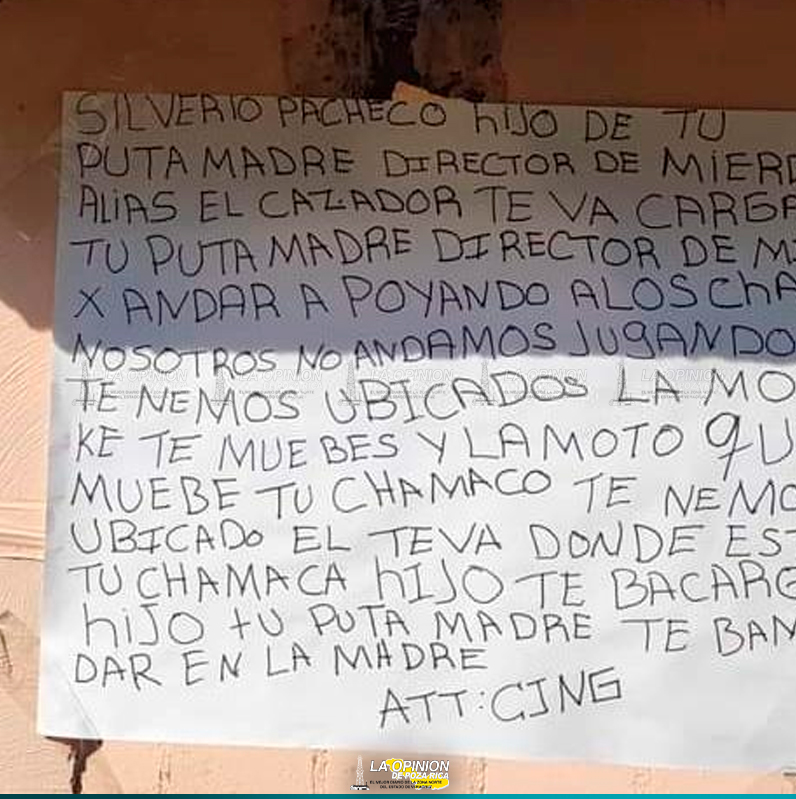 SILVERIO PACHECO hIJO DE TU
PUTA MADRE DIRECTOR DE MIERD
ALIAS EL CAZADOR TE VA CARGA
TU PUTA MADRE DIRECTOR DE MI
X ANDAR A POYANDO ALOS ChA
NOSOTROS NO ANDAMOS JUGANDO
TE NEMOS UBICADOS LA MO
KE TE MUEBES Y LA MOTO qU
MUEBE TU CHAMACO TE NEMO
UBICADO EL TEVA DONDE EST
TU CHAMACA hIJO TE BACARG
hIJO tU PUTA MADRE TE BAN
DAR EN LA MADRE
ATT: CJNG
LA OPINION
DE POZA RICA
EL MEJOR DIARIO DE LA ZONA NORTE
DEL ESTADO DE VERACRUZ